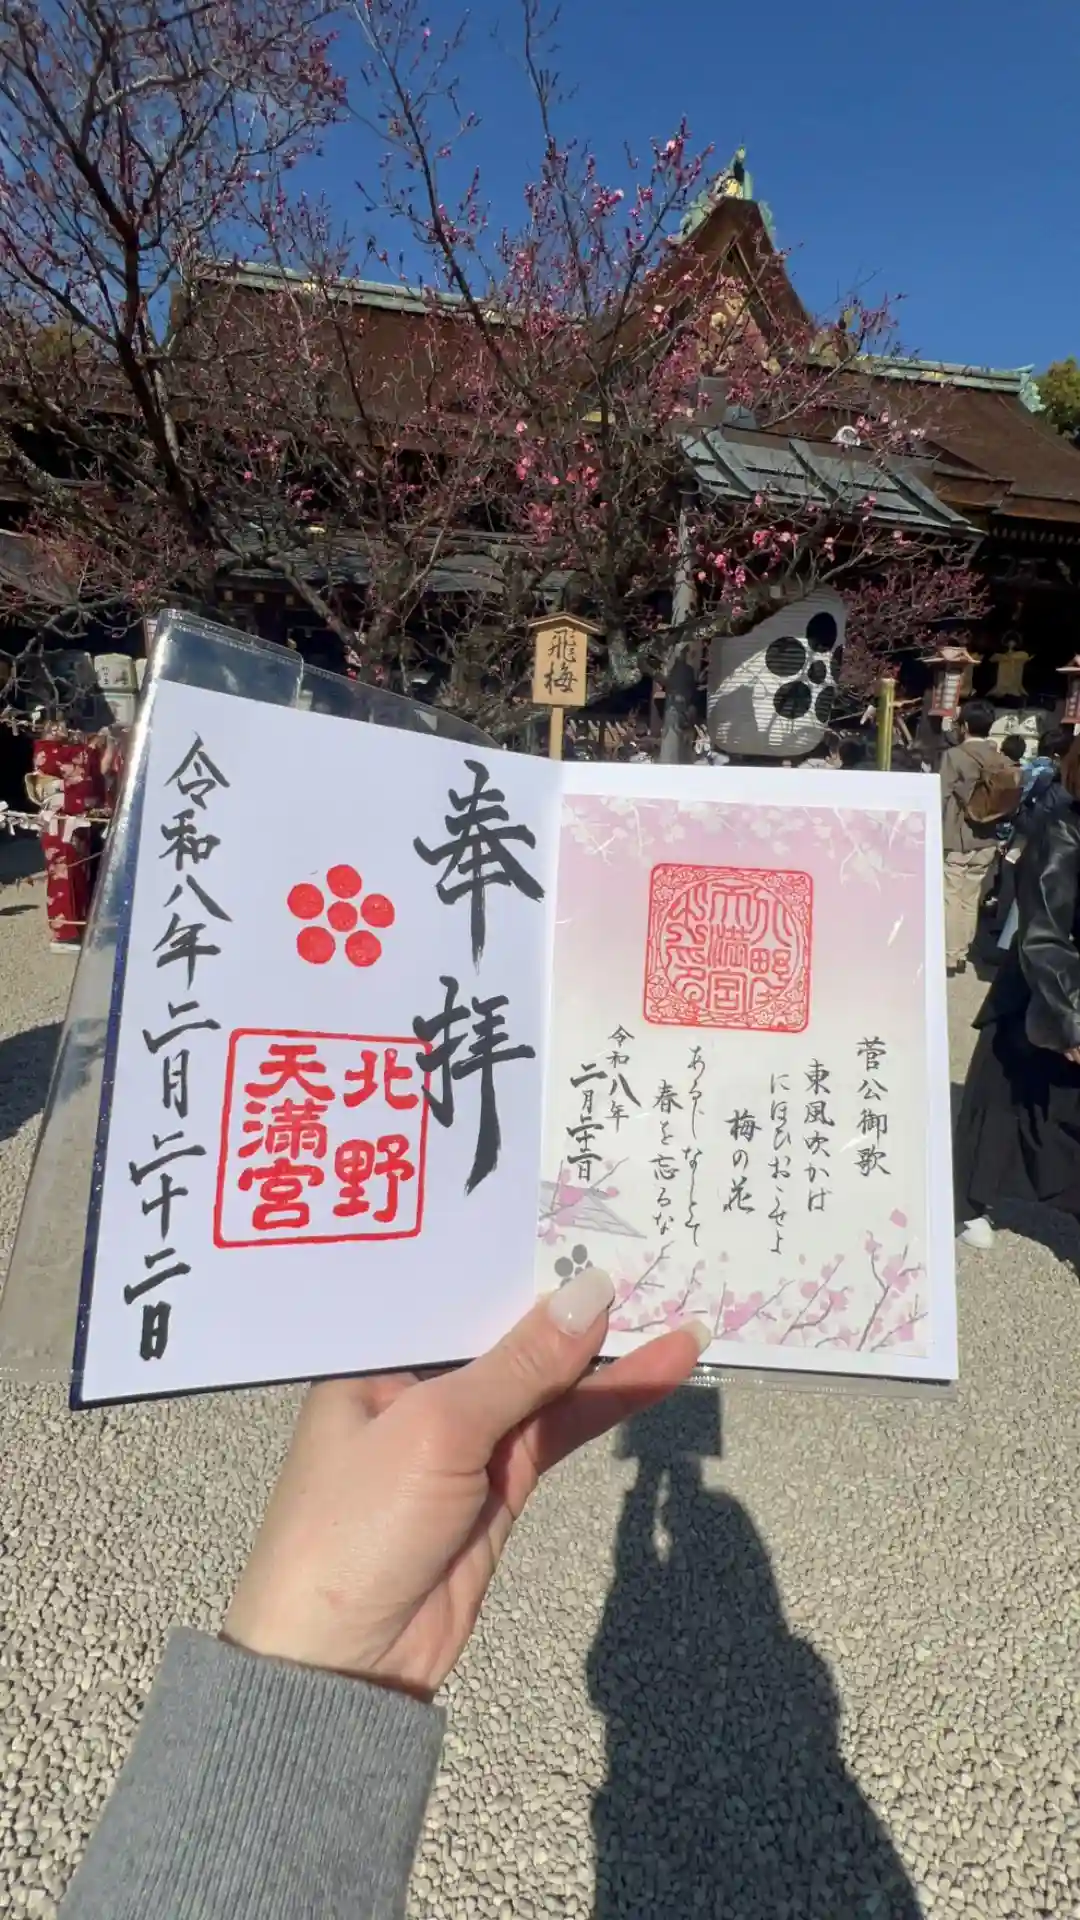 飛梅
奉拝
北野
天満宮
令和八年二月二十二日
北野
天満宮
菅公御歌
東風吹かば
にほひおこせよ
梅の花
あるじなしとて
春を忘るな
令和八年
二月二十二日